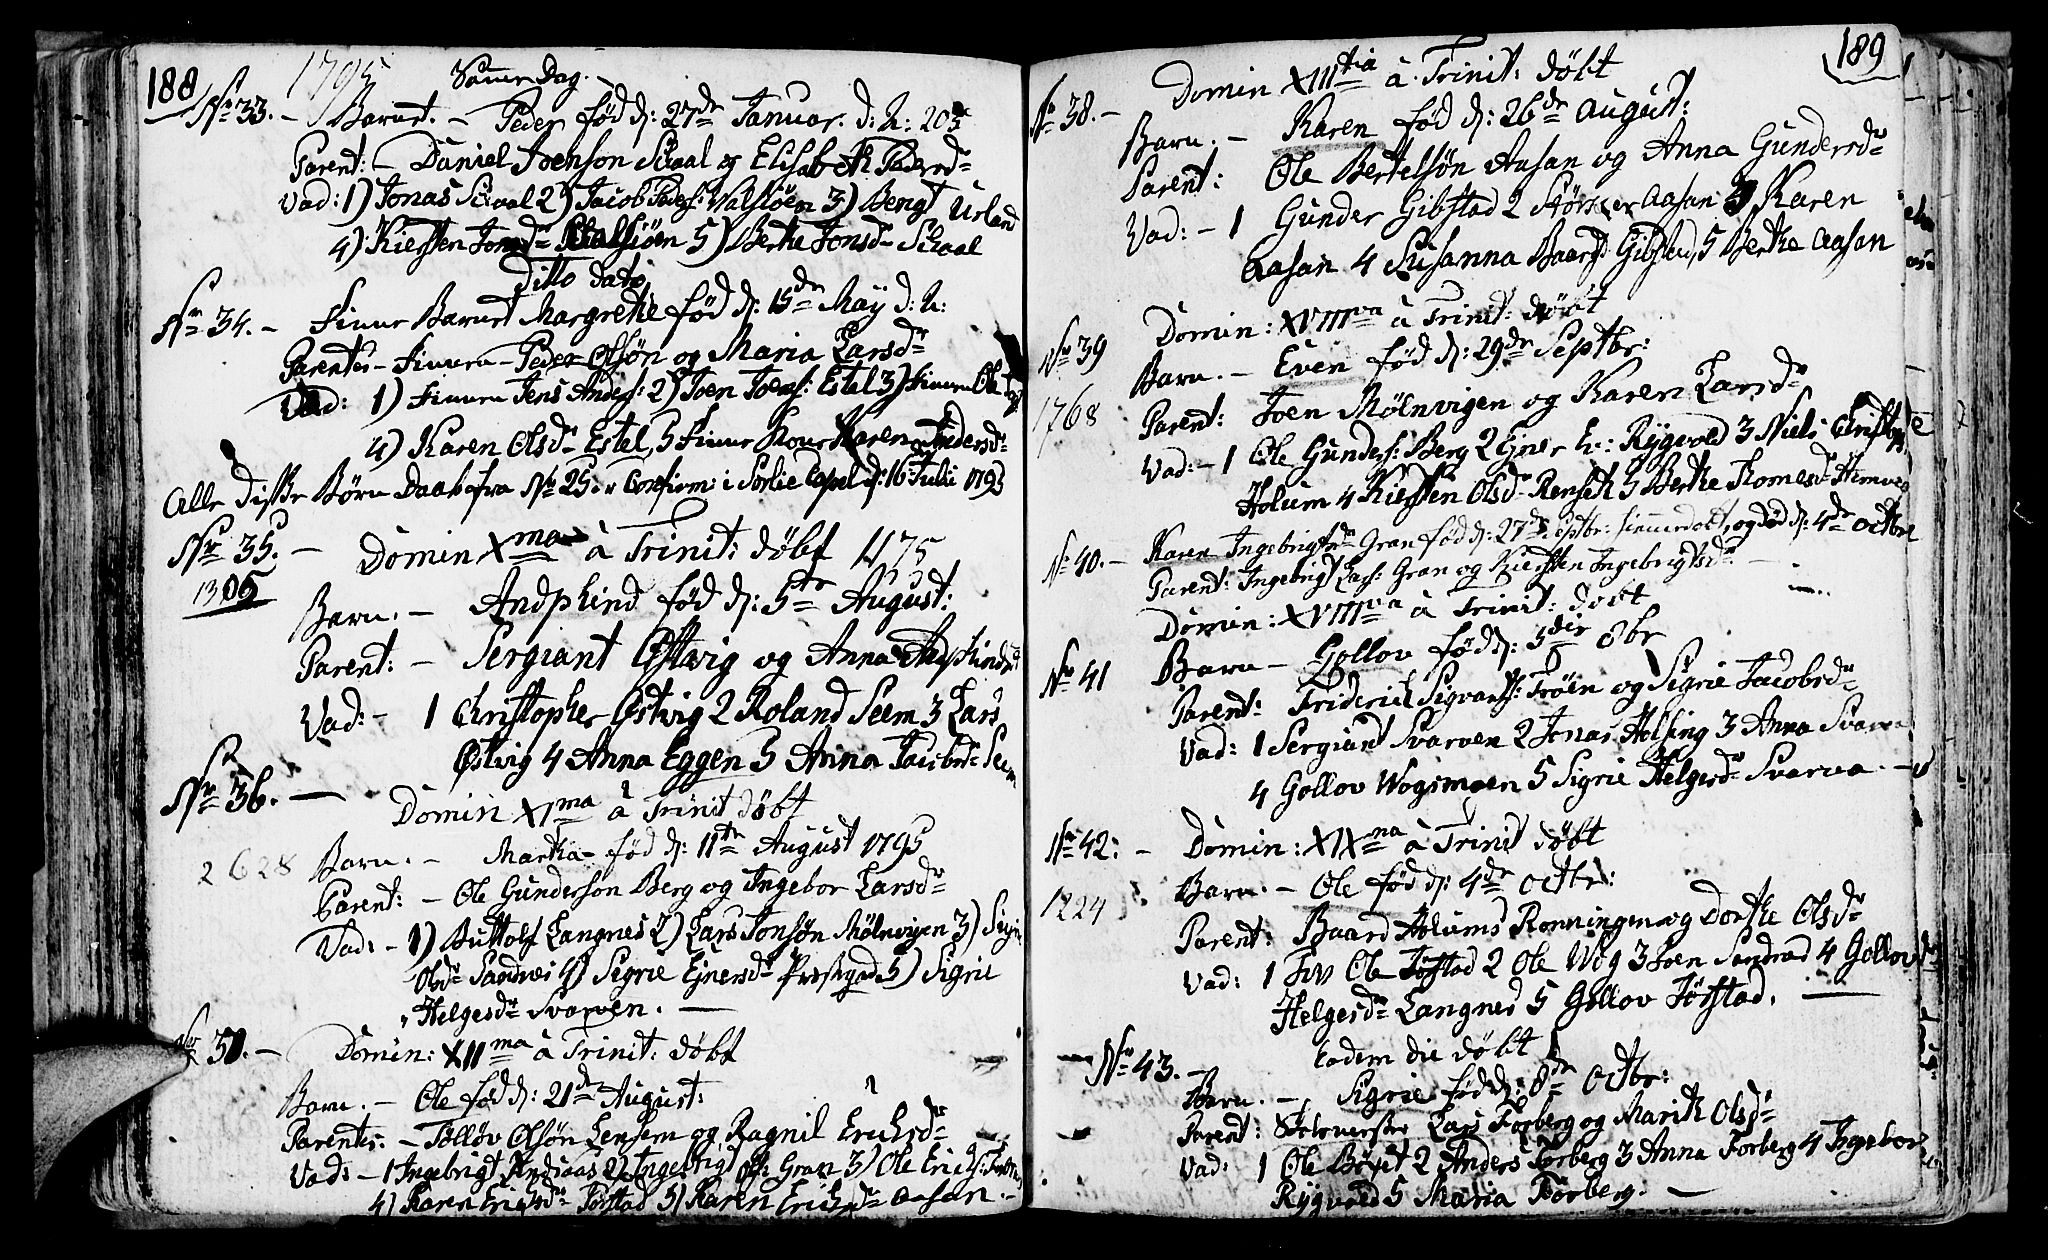 188
1795
Samme Dag.
No 33. - Barnet. - Peder fød d: 27de Januar. d: h:
Parent: - Daniel Joenson Schaal og Elisabeth Pedersdr
Vad: 1) Jonas Schaal 2) Jacob Peders: Valsiøen 3) Bengt Urland
4) Kiersten Jonsdr 5) Berthe Jonsdr Schaal
Ditto dato
No 34. - Finne Barnet Margrethe fød d: 15de Maÿ d: h:
Parentes - Finnen - Peder Olsøn og Maria Larsdr
Vad: 1) Finnen Jens Anders: 2) Joen Joens: Estel 3) Finnen Ole
4) Karen Olsdr Estel, 5 Finne Kone Karen Andersdr
Alle disse Børn Daabs fra No 25. er Confirm: i Sørlie Capel d: 16 Julii 1795
No 35. - Domin Xma à Trinit: døbt 1175
1305
Barn. - Andphind fød d: 5te August:
Parent: - Sergiant Østvig og Anna Andphindsdr
Vad: - 1 Christopher Østvig 2 Roland Seem 3 Lars
Østvig 4 Anna Eggen 5 Anna Jacobsdr Seem
No 36. - Domin XIma à Trinit døbt
2628 Barn. - Martha fød d: 11te August 1795
Parent: - Ole Gunderson Berg og Ingebor Larsdr
Vad: - 1) Buttolf Langnes 2) Lars Jonsøn Mølnvigen 3) Sigri
Olsdr Sandnes 4) Sigrie Ejnersdr Præstgrd 5) Sigrie
Helgesdr Svarven. -
No 37. - Domin: XIIma à Trinit: døbt
Barn. - Ole fød d: 21de August:
Parentes: - Tølløv Olsøn Lensem og Ragnil Erichsdr
Vad: - 1 Ingebrigt Andsaas 2) Ingebrigt Gran 3) Ole Erichs:
4) Karen Erichsdr Jørstad 5) Karen Erichsdr Aasan. -
189
Domin XIIItia à Trinit: døbt
No 38. -
Barn. - Karen fød d: 26de August:
Parent: Ole Bertelsøn Aasan og Anna Gundersdr
Vad: - 1 Gunder Gibstad 2 Størcker Aasan 3 Karen
Aasan 4 Susanna Baards: Gibstad, 5 Berthe Aasan
Domin: XVIIIva à Trinit: døbt
No 39
Barn. - Even fød d: 29de Septbr:
1768 Parent: Joen Mølnvigen og Karen Larsdr
Vad: - 1 Ole Gunders: Berg 2 Ejner E: Rÿgvold 3 Niels
Holum 4 Kiersten Olsdr Renseth 5 Berthe Thomesdr
No 40. - Karen Ingebrigtsdr Gran fød d: 27de Septbr: hiemmedøbt, og død d: 4de Octbr
Parent: Ingebrigt Lars: Gran og Kiersten Ingebrigtsdr -
Domin: XVIIIva à Trinit: døbt
No 41 Barn - Gollov fød d: 3die 8br
Parent: Friderich Sigvarts: Trøen og Sigrie Jacobsdr
Vad: 1 Sergiant Svarven 2 Jonas Holsing 3 Anna Svarva
4 Gollov Wogsmoen 5 Sigrie Helgesdr Svarva. -
No 42: - Domin: XIXna à Trinit døbt
Barn. - Ole fød d: 4de Octbr:
1224
Parent: Baard Holums Ronningen og Dorthe Olsdr
Vad: 1 Ole Jøstad 2 Ole Wog 3 Joen Sandnæs 4 Gollov
Helgesdr Langnes 5 Gollov Jørstad. -
Eadem die døbt
No 43. -
Barn. - Sigrie fød d: 8de Octbr:
Parent: Lars Førberg og Marith Olsdr
Vad: 1 Ole 2 Anders Førberg 3 Anna Førberg 4 Ingebor
Rÿgvold 5 Maria Førberg. -